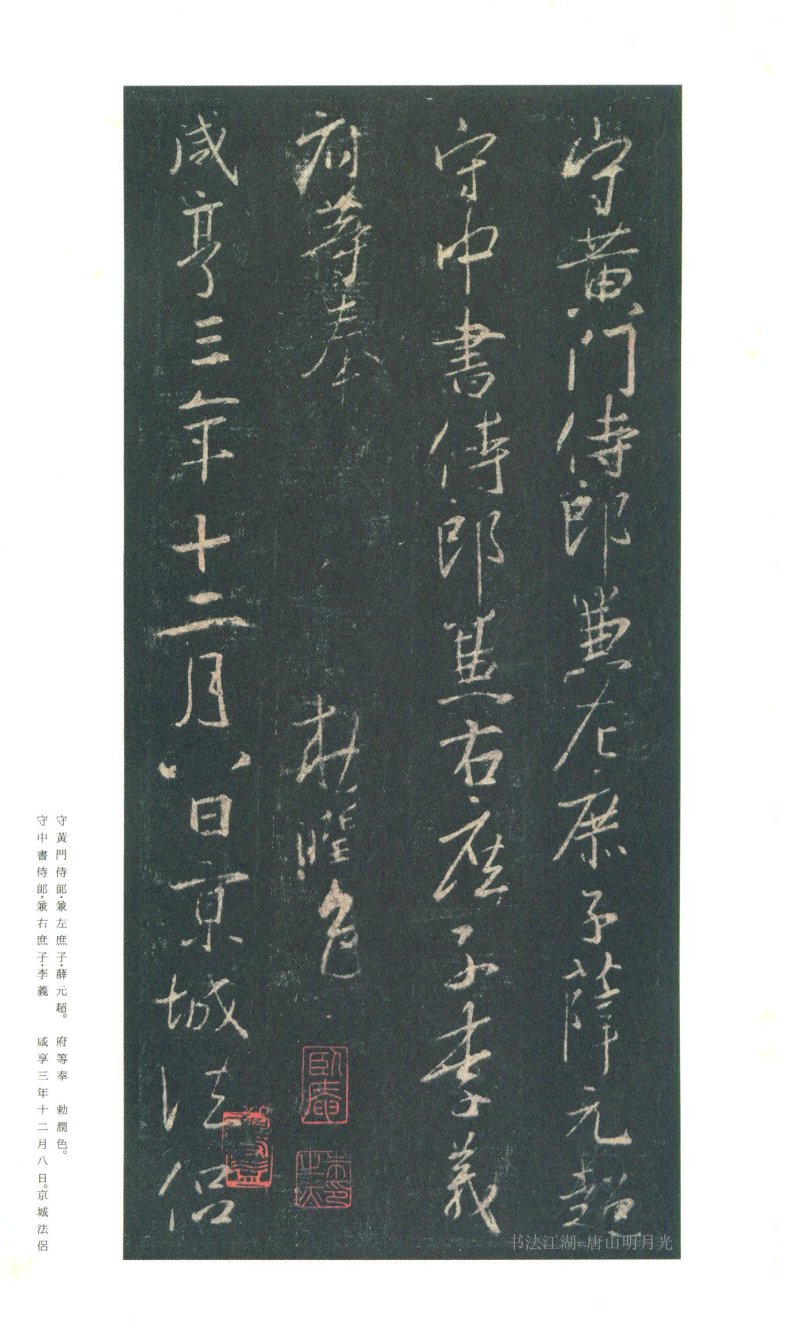 守黃門侍郎兼左庶子薛元超
守中書侍郎兼右庶子李義
府等奉 勑潤色
咸亨三年十二月八日京城法侶
臥庵
守黃門侍郎·兼左庶子·薛元超。 府等奉 勅潤色。
守中書侍郎·兼右庶子·李義 咸享三年十二月八日。京城法侶
书法江湖-唐山明月光